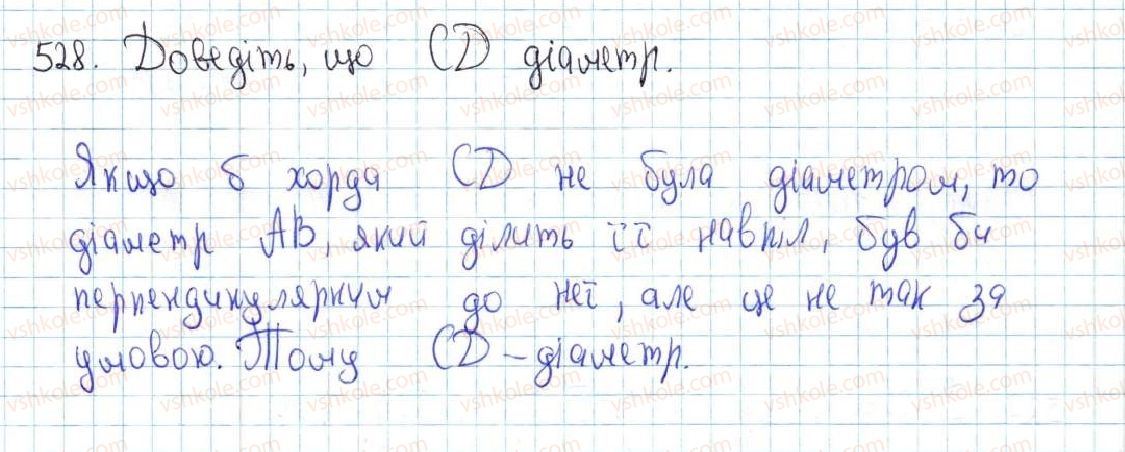 528. Доведіть, що CD діаметр.
Якщо б хорда CD не була діаметром, то
діаметр AB, який ділить її навпіл, був би
перпендикулярним до неї, але це не так за
умовою. Тому CD – діаметр.
vshkole.com